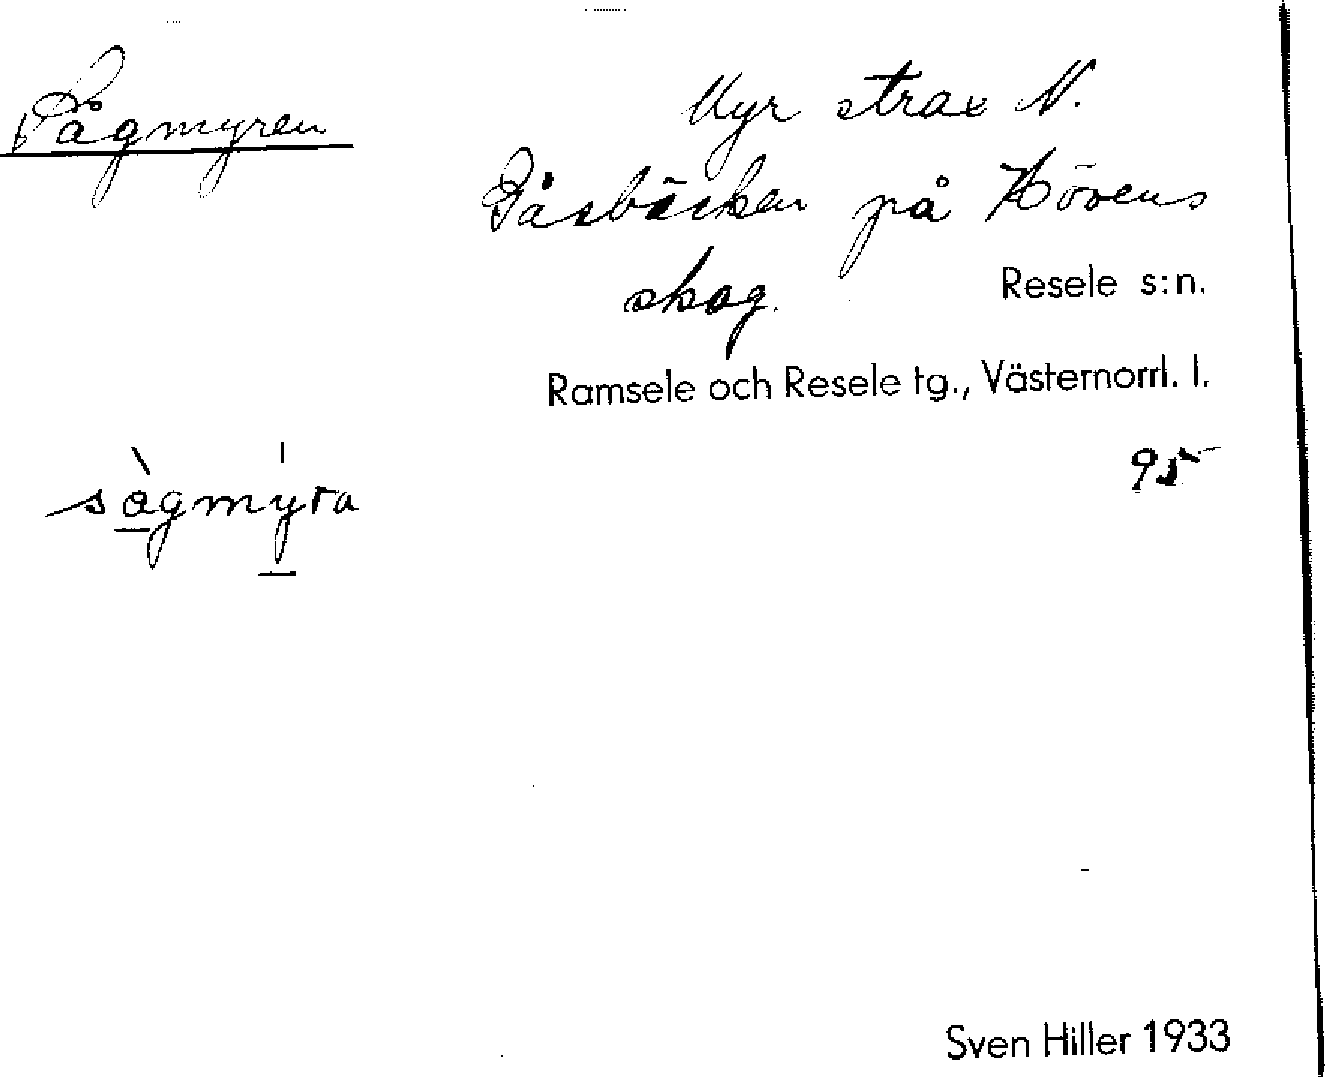 Sågmyren
Myr strax N.
Gåsbäcken på Hövens
skog.
Resele s:n.
Ramsele och Resele tg., Västernorrl. l.
95
sågmýra
Sven Hiller 1933